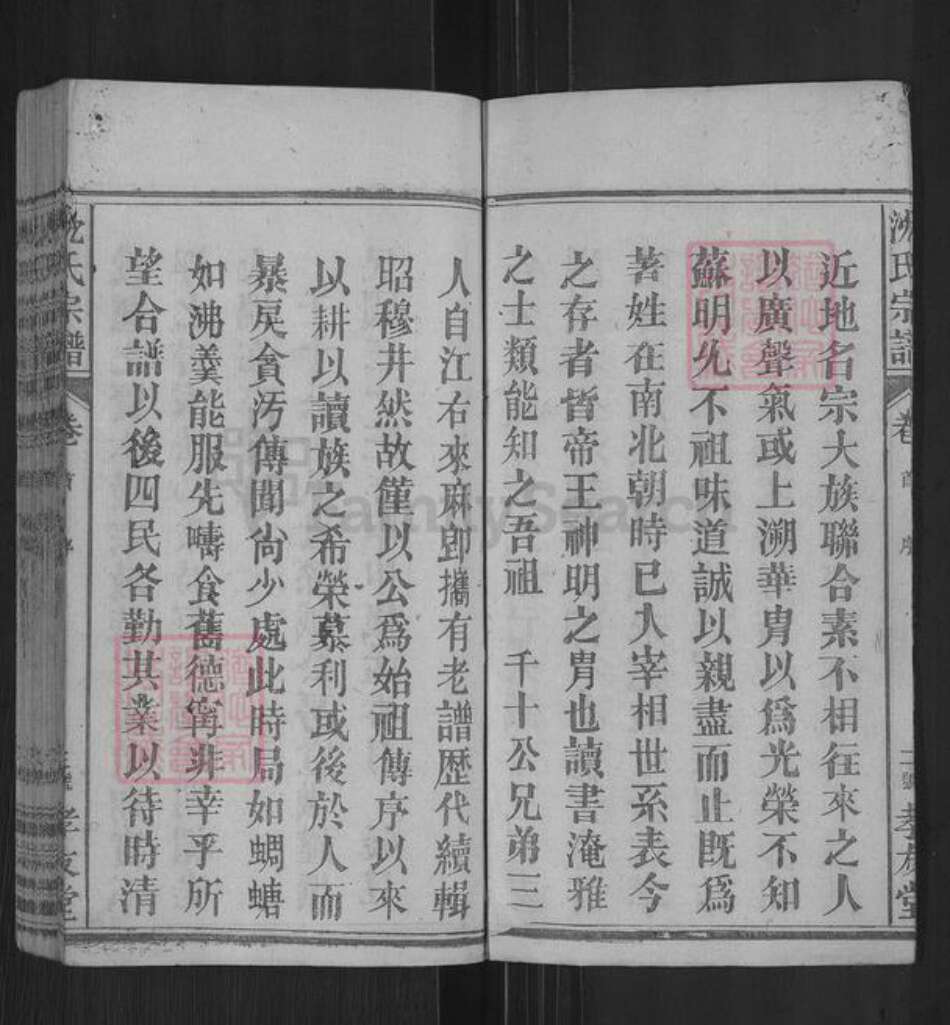 近地名宗大族聯合素不相往來之人
以廣聲氣或上溯華胄以爲光榮不知
蘇明允不祖味道誠以親盡而止既爲
著姓在南北朝時已人宰相世系表今
之存者皆帝王神明之胄也讀書淹雅
之士類能知之吾祖 千十公兄弟三
人自江右來麻卽攜有老譜歷代續輯
昭穆井然故僅以公爲始祖傳序以來
以耕以讀族之希榮慕利或後於人而
暴戾貪汚傳聞尙少處此時局如蜩螗
如沸羹能服先疇食舊德寗非幸乎所
望合譜以後四民各勤其業以待時清
氏宗譜
卷首
孝友堂
氏宗譜
卷首
孝友堂
FamilySearch